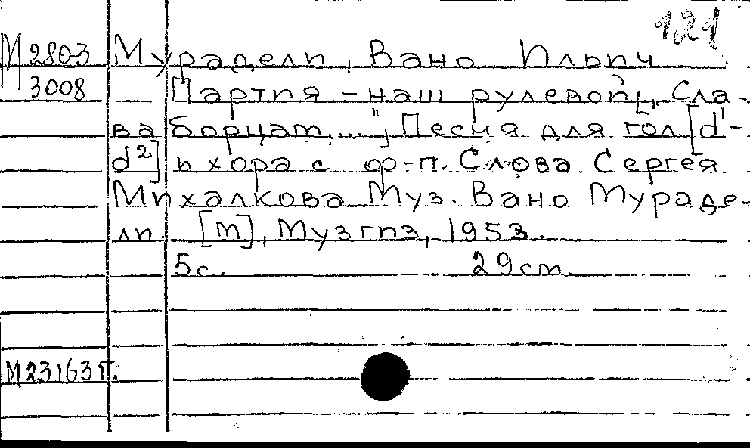 121
М 2803 Мурадели, Вано Ильич
3008 Партия – наш рулевой [„Сла-
ва борцам..."] Песня для гол [d¹-
d²] и хора с ф-п. Слова Сергея
Михалкова Муз. Вано Мураде-
ли [М], Музгиз, 1953.
5с. 29cm
М23163г.